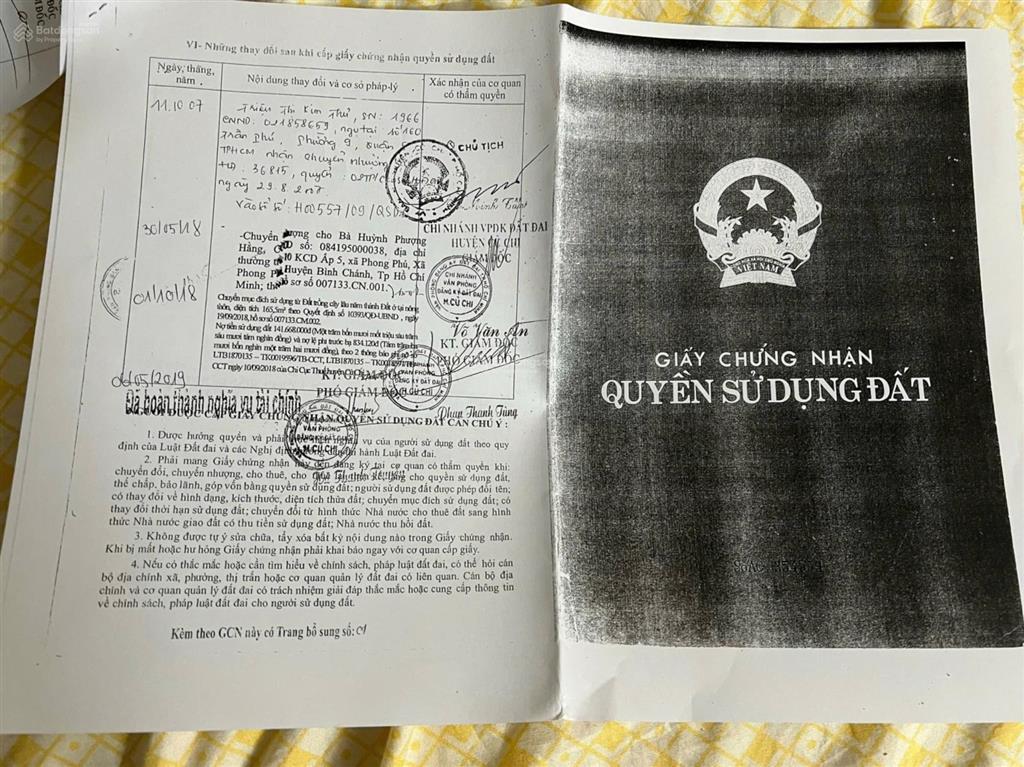 Batdongsan
by PropertyGuru
VI- Những thay đổi sau khi cấp giấy chứng nhận quyền sử dụng đất
Ngày, tháng, năm
Nội dung thay đổi và cơ sở pháp lý
Xác nhận của cơ quan có thẩm quyền
11.10.07
Triệu Thị Kim Thủ, SN: 1966
CMND: 021858659, ngụ tại số 160
Trần Phú, Phường 9, quận
TPHCM nhận chuyển nhượng
HĐ: 36815, quyển:
ngày 29.8.2007
Vào sổ số: H00557/09
CHỦ TỊCH
30/05/18
-Chuyển nhượng cho Bà Huỳnh Phượng
Hằng, số: 084195000038, địa chỉ
thường 10 KCD Ấp 5, xã Phong Phú, Xã
Phong Huyện Bình Chánh, Tp Hồ Chí
Minh; sơ số 007133.CN.001.
CHI NHÁNH VPĐK ĐẤT ĐAI
HUYỆN CỦ CHI
GIÁM ĐỐC
CHI NHÁNH
VĂN PHÒNG
ĐĂNG KÝ ĐẤT ĐAI
H.CỦ CHI
Võ Văn Ân
01/10/18
Chuyển mục đích sử dụng từ Đất trồng cây lâu năm thành Đất ở tại nông
thôn, diện tích 165,5m² theo Quyết định số 10393/QĐ-UBND, ngày
19/09/2018, hồ sơ số 007133.CM.002.
Nợ tiền sử dụng đất 141.668.000đ (Một trăm bốn mươi mốt triệu sáu trăm
sáu mươi tám nghìn đồng) và nợ lệ phí trước bạ 834.120đ (Tám trăm ba
mươi bốn nghìn một trăm hai mươi đồng), theo 2 thông báo
LTB1870135 – TK0019596/TB-CCT, LTB1870135 –
CCT ngày 10/09/2018 của Chi Cục Thuế huyện
KT. GIÁM ĐỐC
PHÓ GIÁM ĐỐC
Phan Thanh Tùng
06/05/2019
Đã hoàn thành nghĩa vụ tài chính
KT. GIÁM ĐỐC
PHÓ GIÁM ĐỐC
VĂN PHÒNG
ĐĂNG KÝ ĐẤT ĐAI
H.CỦ CHI
NHẬN QUYỀN SỬ DỤNG ĐẤT CẦN CHÚ Ý :
1. Được hưởng quyền và phải vụ của người sử dụng đất theo quy
định của Luật Đất đai và các Nghị định hành Luật Đất đai.
2. Phải mang Giấy chứng nhận này đến đăng ký tại cơ quan có thẩm quyền khi:
chuyển đổi, chuyển nhượng, cho thuê, cho kế, tặng cho quyền sử dụng đất,
thế chấp, bảo lãnh, góp vốn bằng quyền sử dụng đất; người sử dụng đất được phép đổi tên;
có thay đổi về hình dạng, kích thước, diện tích thửa đất; chuyển mục đích sử dụng đất; có
thay đổi thời hạn sử dụng đất; chuyển đổi từ hình thức Nhà nước cho thuê đất sang hình
thức Nhà nước giao đất có thu tiền sử dụng đất; Nhà nước thu hồi đất.
3. Không được tự ý sửa chữa, tẩy xóa bất kỳ nội dung nào trong Giấy chứng nhận.
Khi bị mất hoặc hư hỏng Giấy chứng nhận phải khai báo ngay với cơ quan cấp giấy.
4. Nếu có thắc mắc hoặc cần tìm hiểu về chính sách, pháp luật đất đai, có thể hỏi cán
bộ địa chính xã, phường, thị trấn hoặc cơ quan quản lý đất đai có liên quan. Cán bộ địa
chính và cơ quan quản lý đất đai có trách nhiệm giải đáp thắc mắc hoặc cung cấp thông tin
về chính sách, pháp luật đất đai cho người sử dụng đất.
Kèm theo GCN này có Trang bổ sung số: 01
VIỆT NAM
GIẤY CHỨNG NHẬN
QUYỀN SỬ DỤNG ĐẤT